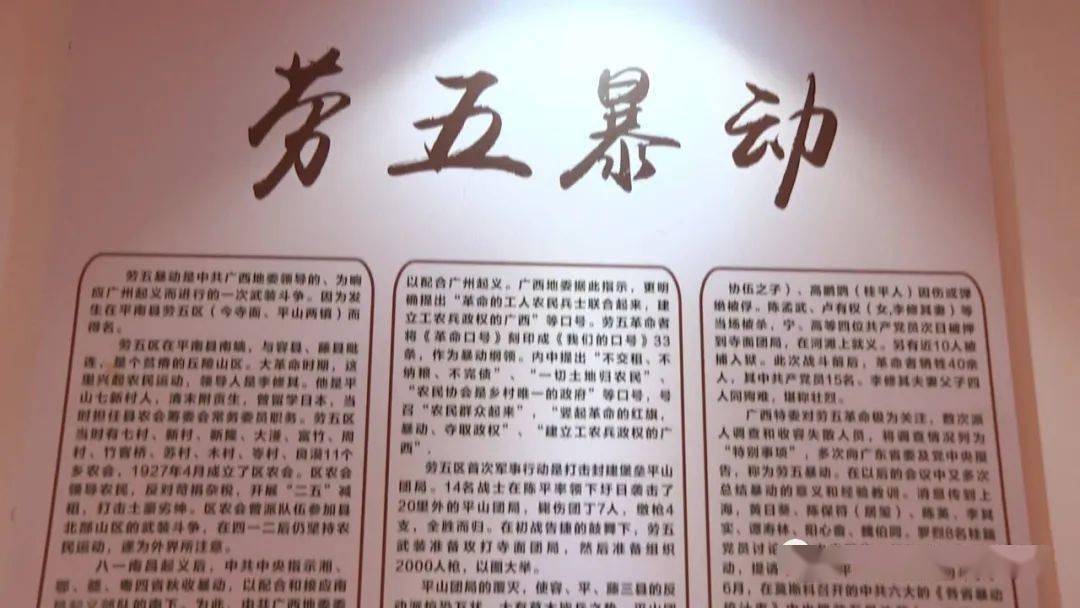 劳五暴动
劳五暴动是中共广西地委领导的、为响
应广州起义而进行的一次武装斗争。因为发
生在平南县劳五区（今寺面、平山两镇）而
得名。
劳五区在平南县南端，与容县、藤县毗
连，是个贫瘠的丘陵山区。大革命时期，这
里兴起农民运动，领导人是李修其。他是平
山七新村人，清末附贡生，曾留学日本，当
时担任县农会筹委会常务委员职务。劳五区
当时有七村、新村、新隆、大漫、富竹、周
村、竹官桥、苏村、木村、岑村、良漠11个
乡农会，1927年4月成立了区农会。区农会
领导农民，反对苛捐杂税，开展“二五”减
租，打击土豪劣绅。区农会曾派队伍参加县
北部山区的武装斗争，在四一二后仍坚持农
民运动，遂为外界所注意。
八一南昌起义后，中共中央指示湘、
鄂、赣、粤四省秋收暴动，以配合和接应南
昌起义部队的南下。为此，中共广西地委
以配合广州起义。广西地委据此指示，更明
确提出“革命的工人农民兵士联合起来，建
立工农兵政权的广西”等口号。劳五革命者
将《革命口号》刻印成《我们的口号》33
条，作为暴动纲领。内中提出“不交租、不
纳粮、不完债”、“一切土地归农民”、
“农民协会是乡村唯一的政府”等口号，号
召“农民群众起来”，“竖起革命的红旗，
暴动、夺取政权”、“建立工农兵政权的广
西”。
劳五区首次军事行动是打击封建堡垒平山
团局。14名战士在陈平率领下圩日袭击了
20里外的平山团局，毙伤团丁7人，缴枪4
支，全胜而归。在初战告捷的鼓舞下，劳五
武装准备攻打寺面团局，然后准备组织
2000人枪，以图大举。
平山团局的覆灭，使容、平、藤三县的反
动派恐万状，大有草木皆兵之势。平山团局
协伍之子）、高鹏鹍（桂平人）因伤或弹
绝被俘。陈孟武、卢有权（女,李修其妻）等
当场被杀，宁、高等四位共产党员次日被押
到寺面团局，在河滩上就义。另有近10人被
捕入狱。此次战斗前后，革命者牺牲40余
人，其中共产党员15名。李修其夫妻父子四
人同殉难，堪称壮烈。
广西特委对劳五革命极为关注，首次派
人调查和收容失散人员，将调查情况列为
“特别事项”，多次向广东省委及党中央报
告，称为劳五暴动。在以后的会议中又多次
总结暴动的意义和经验教训。消息传到上
海，黄日葵、陈保符（居玺）、陈英、李其
实、谭寿林、阳心畲、魏伯同、罗烈8名桂籍
党员讨论
动，提请
6月，在莫斯科召开的中共六大的《各省暴动